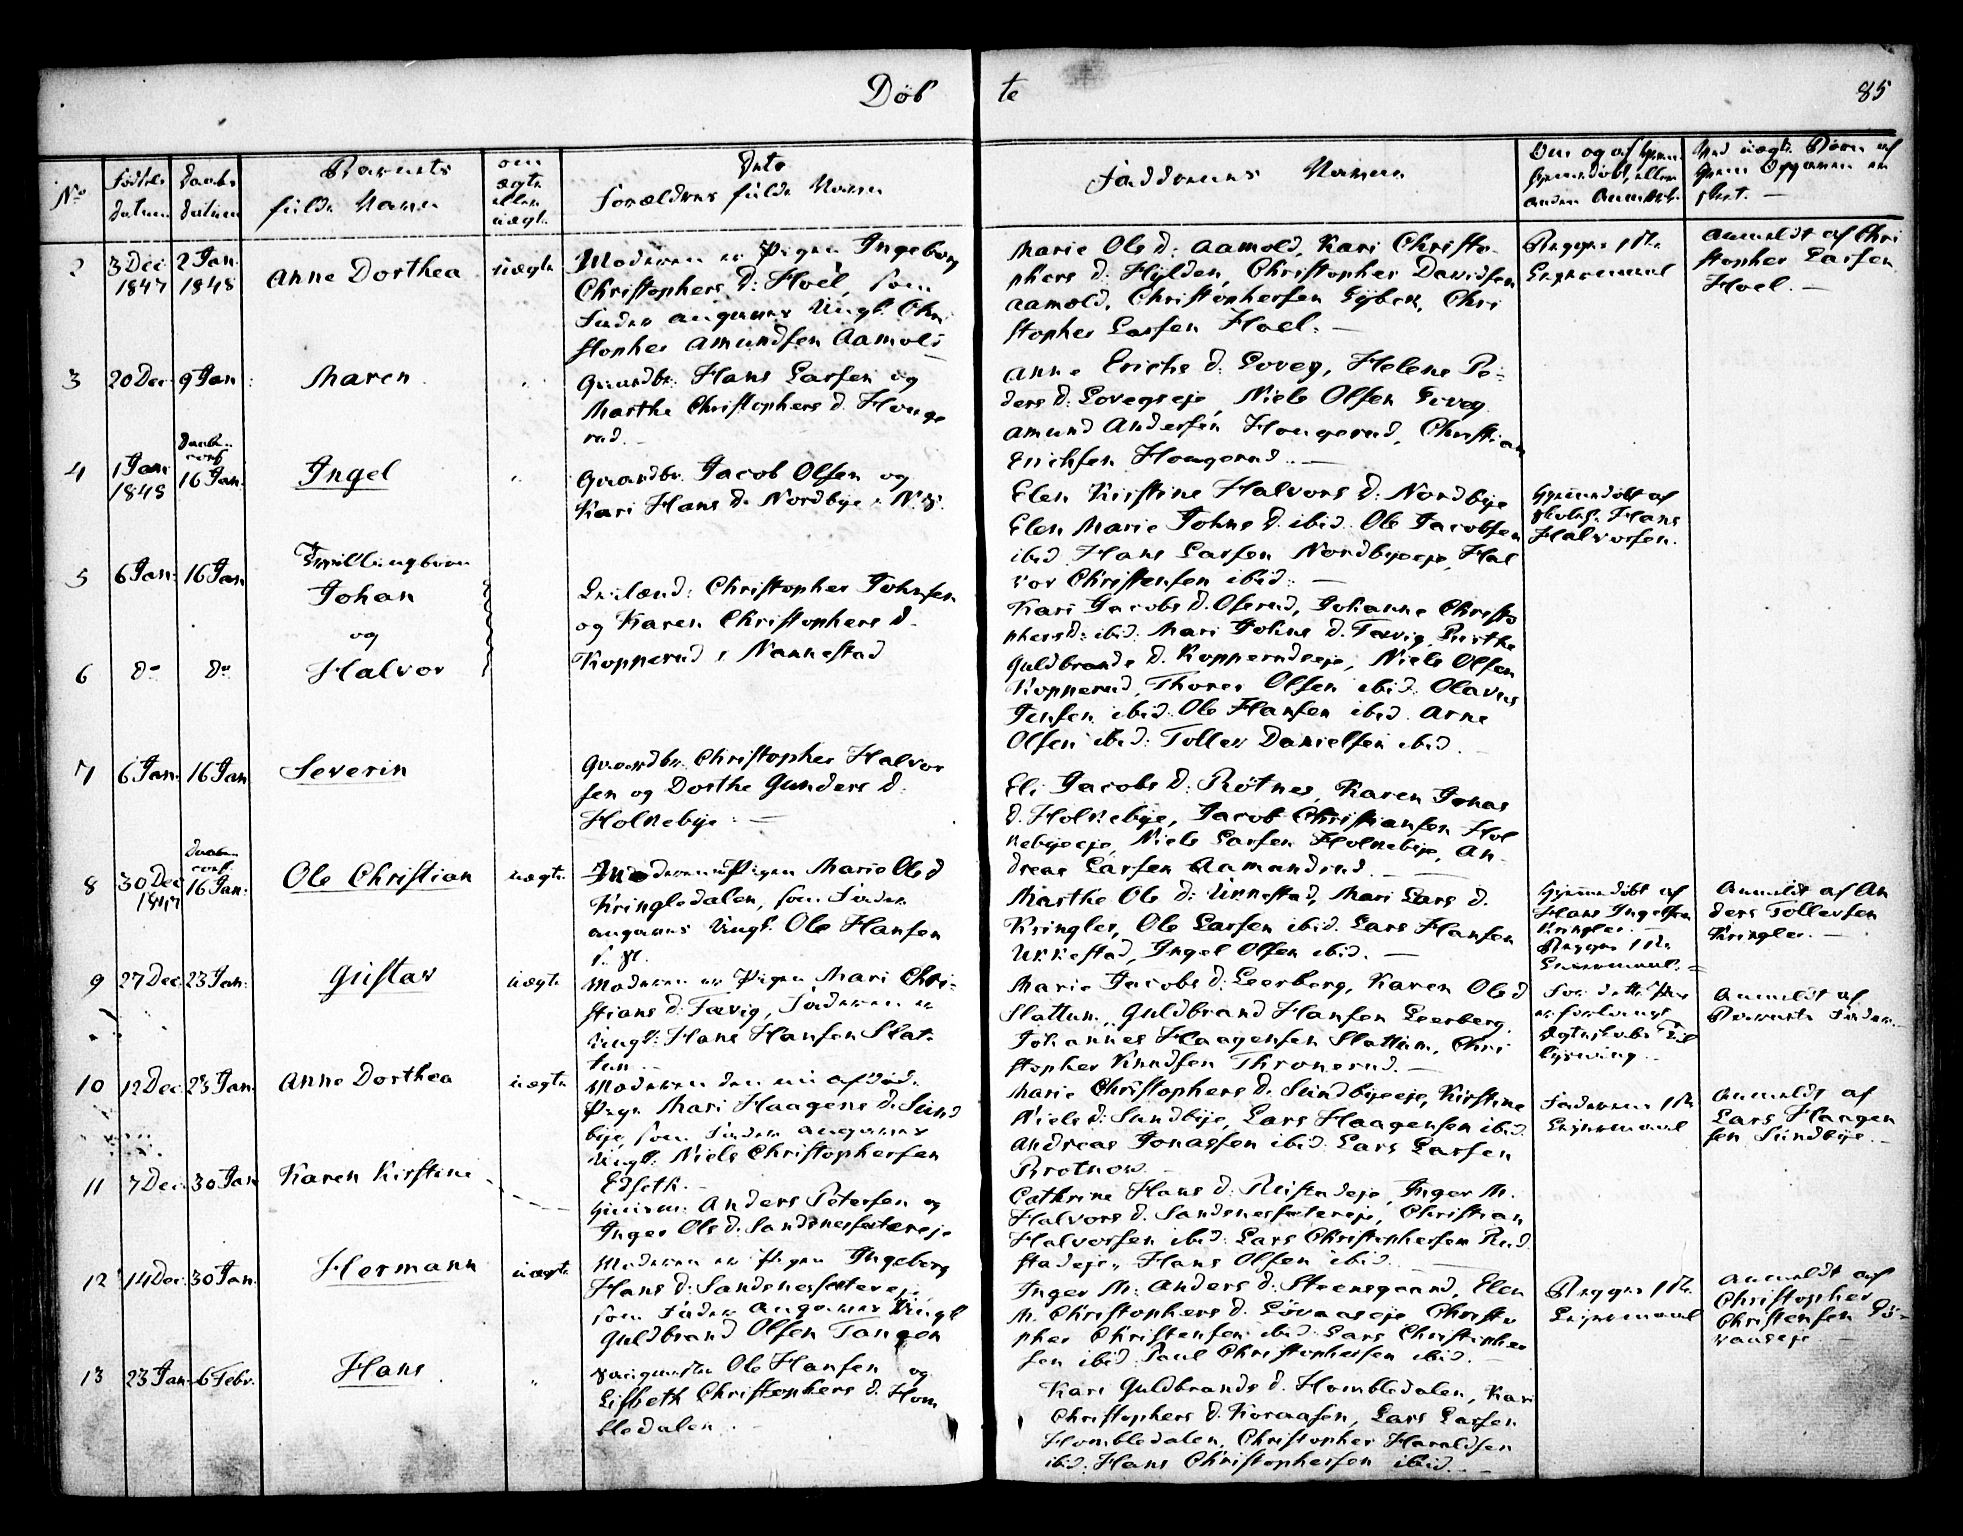 Døb te 85
No
Fødsels datum
Daabs datum
Barnets fulde Navn
om ægte eller uægt.
Dets Forældres fulde Navn
Faddernes Navne
2
3 Dec 1847
2 Jan 1848
Anne Dorthea
uægte
Moderen er Pigen Ingeborg
Christophers d: Hoel, som
Fader angives Ungk. Chri
stopher Amundsen Aamold
Marie Ols d: Aamold, Kari Christo-
phers d: Hylden, Christopher Davidsen
Aamold, Christophersen Gybek, Chri
stopher Larsen Hoel. —
Begges 1ste
Leiermaal
Anmeldt af Chri
stopher Larsen
Hoel. —
3
20 Dec
9 Jan:
Maren
Gaardbr. Hans Larsen og
Marthe Christophers d. Houge
rud. —
Anne Erichs d. Loveg, Helene Pe-
ders d: Lovegseje, Niels Olsen Loveg
Amund Andersen Hougerud, Christian
Erichsen Hougerud. —
4
1 Jan: 1848
16 Jan:
Ingel
Gaardbr. Jacob Olsen og
Kari Hans d. Nordbye
Elen Kirstine Halvors d: Nordbye
Elen Marie Johns d. ibid. Ole Jacobsen
ibid. Hans Larsen Nordbyeeje, Hal
vor Christensen ibid: —
Hjemmedøbt af
Hans
Halvorsen.
5
6 Jan:
16 Jan
Tvillingbørn
Johan
og
Christopher Johnsen
og Karen Christophers d.
Kopperud i Nannestad
6
do
do
Halvor
Kari Jacobs d. Oserud, Johanne Christo
phers d: ibid. Mari Johns d. Tævig, Birthe
Guldbrands d. Kopperudseje, Niels Olsen
Kopperud, Thores Olsen ibid. Olavus
Jensen ibid. Ole Hansen ibid. Arne
Olsen ibid: Tollev Danielsen ibid.
7
6 Jan:
16 Jan
Severin
Gaardbr. Christopher Halvor
sen og Dorthe Gunders d.
Holkebye. —
Eli Jacobs d: Røtnes, Karen Jonas
d. Holkebye, Jacob Christiansen Hol
kebyeeje, Niels Larsen Holkebye, An-
dreas Larsen Aamundrud. —
8
30 Dec 1847
16 Jan:
Ole Christian
uægte
Moderen Pigen Marie Ols d
Kringledalen, som Fader
angives Ungk. Ole Hansen
Marthe Ols d: Ukkestad, Mari Lars d.
Kringler, Ole Larsen ibid. Lars Hansen
Ukkestad, Ingel Olsen ibid. —
Hjemmedøbt af
Hans Ingelsen
Kringler. —
Begges 1ste
Leiermaal. —
Anmeldt af An
ders Tollevsen
Kringler. —
9
27 Dec
23 Jan:
Gustav
uægte
Moderen er Pigen Mari Chri-
stians d. Tævig, Faderen er
Ungk: Hans Hansen Slat-
tun —
Marie Jacobs d: Leerberg, Karen Ols d
Slattun, Guldbrand Hansen Leerberg
Johannes Haagensen Slattum, Chri
stopher Knudsen Thronerud. —
For dette Par
er forlangt
Ægteskabs Til
lysning.
Anmeldt af
Barnets Fader. —
10
12 Dec
23 Jan.
Anne Dorthea
uægte
Moderen den nu afdøde
Pige Mari Haagens d. Sund
bye, som Fader angives
Ungk: Niels Christophersen
Edseth. —
Marie Christophers d. Sundbyeeje, Kirstine
Niels d: Sundbye, Lars Haagensen ibid.
Andreas Jonassen ibid. Lars Larsen
Brotnow. —
Faderens 1ste
Leiermaal
Anmeldt af
Lars Haagen
sen Sundbye. —
11
7 Dec.
30 Jan
Karen Kirstine
Huusm: Anders Petersen og
Inger Ols d. Sandsnesfætereje
Cathrine Hans d: Reistadeje, Inger M.
Halvors d. Sandsnesfætereje, Christian
Halvorsen ibid: Lars Christophersen Rud
stadeje, Hans Olsen ibid.
12
14 Dec.
30 Jan.
Hermann
uægte
Moderen er Pigen Ingeborg
Hans d: Sandsnesfætereje,
som Fader angives Ungk
Guldbrand Olsen Tangen
Inger M: Anders d. Steensgaard, Elen
M. Christophers d. Løvaaseje Christo
pher Christensen ibid. Lars Christopher
sen ibid. Paul Christophersen ibid. —
Begges 1ste
Leiermaal
Anmeldt af
Christopher
Christensen Lø-
vaaseje. —
13
23 Jan.
6 Febr.
Hans
Ole Hansen og
Lisbeth Christophers d. Hom
bledalen. —
Kari Guldbrands d. Hombledalen, Kari
Christophers d. Koraasen, Lars Larsen
Hombledalen, Christopher Haraldsen
ibid: Hans Christophersen ibid. —